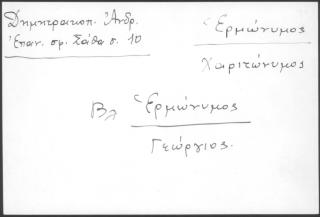 Δημητρακοπ. Ἀνδρ.
Ἐπαν. ορ. Σάθα σ. 10
Ἑρμώνυμος
Χαριτώνυμος
Βλ Ἑρμώνυμος
Γεώργιος.